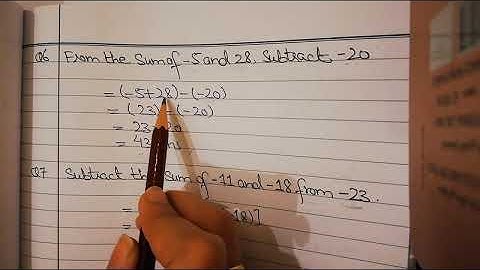 Q6 From the sum of -5 and 28, subtract -20
= (-5+28)-(-20)
= (23) - (-20)
= 23 20
= 43
Q7 Subtract the sum of -11 and -18 from -23.
=
= 18)]